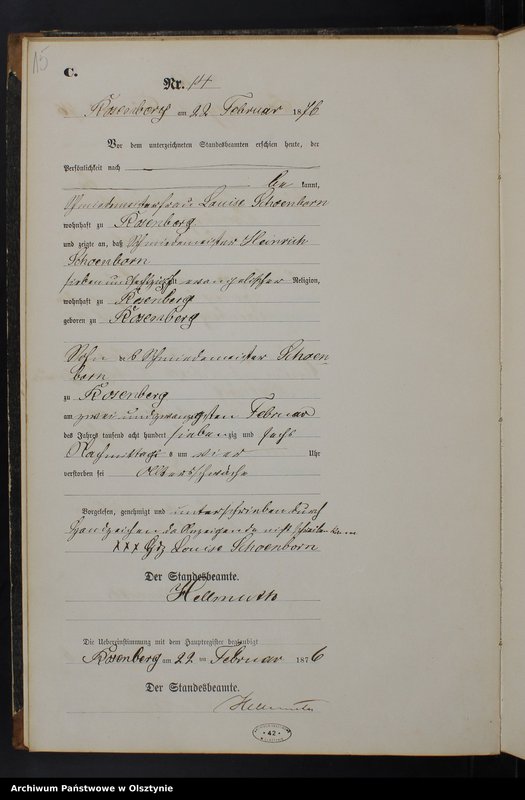 15
C.
Nr. 14
Rosenberg am 22 Februar 1876
Vor dem unterzeichneten Standesbeamten erschien heute, der
Persönlichkeit nach
be kannt,
Schmiedemeisterfrau Louise Schoenborn
wohnhaft zu Rosenberg
und zeigte an, daß Schmiedemeister Heinrich
Schoenborn
sieben und sechszig evangelischer Religion,
wohnhaft zu Rosenberg
geboren zu Rosemberg
Sohn des Schmiedemeister Schoen-
born
zu Rosenberg
am zwei und zwanzigsten Februar
des Jahres tausend acht hundert siebenzig und sechs
Nachmittags um vier Uhr
verstorben sei Altersschwäche
Vorgelesen, genehmigt und unterschrieben durch
Handzeichen da Anzeigende nicht schreiben kann
XXX Hdz Louise Schoenborn
Der Standesbeamte.
Hellmuth
Die Uebereinstimmung mit dem Hauptregister beglaubigt
Rosenberg am 22 ten Februar 1876
Der Standesbeamte.
Hellmuth
42
Archiwum Państwowe w Olsztynie